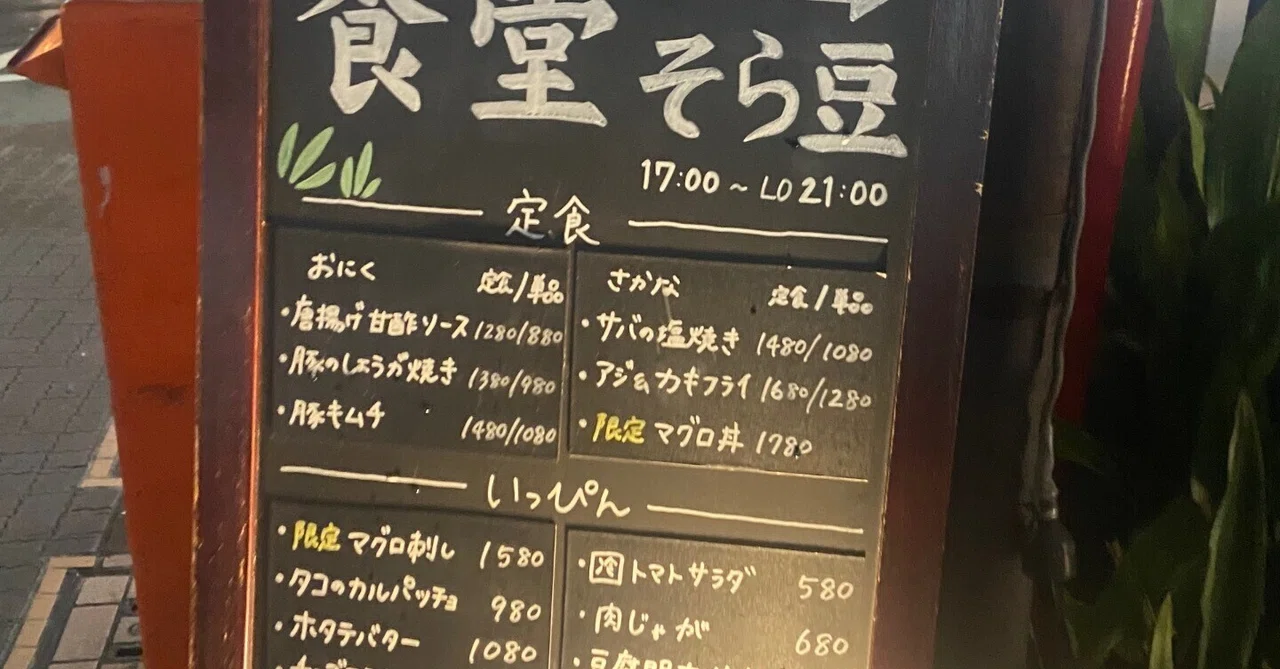 食堂 そら豆
17:00 ~ LO 21:00
定食
おにく 定食/単品
・唐揚げ甘酢ソース 1280/880
・豚のしょうが焼き 1380/980
・豚キムチ 1480/1080
さかな 定食/単品
・サバの塩焼き 1480/1080
・アジ&カキフライ 1680/1280
・限定 マグロ丼 1780
いっぴん
・限定 マグロ刺し 1580
・タコのカルパッチョ 980
・ホタテバター 1080
・冷 トマトサラダ 580
・肉じゃが 680